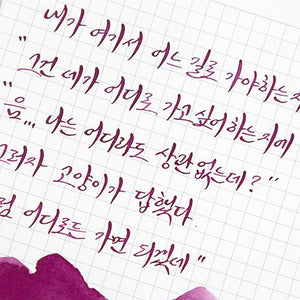 내가 여기서 어느 길로 가야하는지
"그건 네가 어디로 가고 싶어하는지에
"음... 나는 어디라도 상관없는데?"
그러자 고양이가 답했다.
럼 어디로든 가면 되겠네"